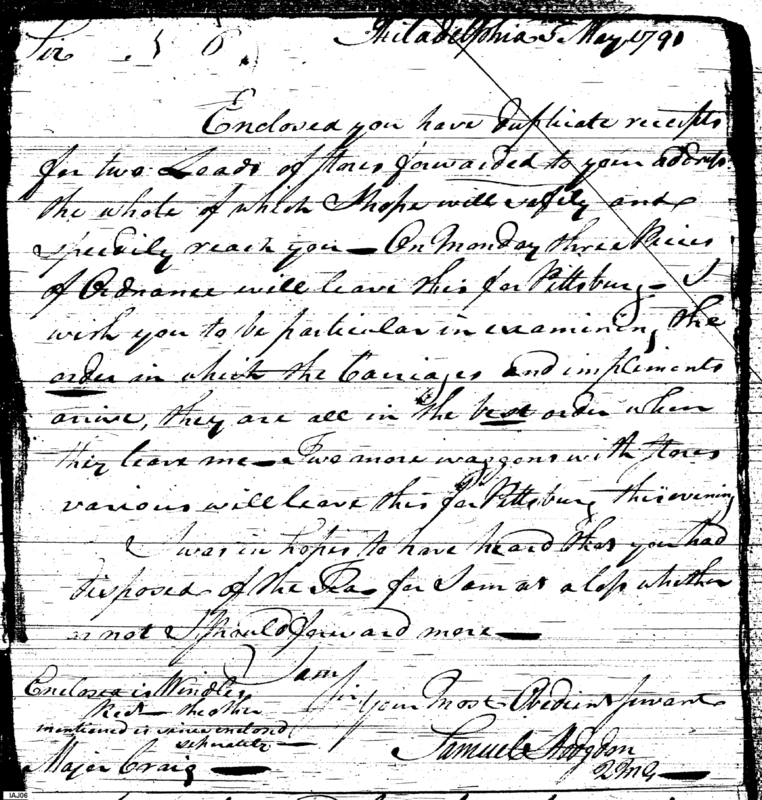 Philadelphia 5 May 1791
Sir
Enclosed you have duplicate receipts
for two Loads of stores forwarded to your address
the whole of which I hope will safely and
speedily reach you — On Monday three Pieces
of Ordnance will leave this for Pittsburg — I
wish you to be particular in examining the
order in which the Carriages and impliments
arrive, they are all in the best order when
they leave me — Two more waggons with stores
various will leave this for Pittsburg this evening
I was in hopes to have heard that you had
disposed of the Tea for I am at a loss whether
or not I should forward more —
I am
Sir
your most Obedient servant
Samuel Hodgdon
QMG
Enclosed is Windles
Rect the other
mentioned is enclosed
seperately
Major Craig
IAJ06